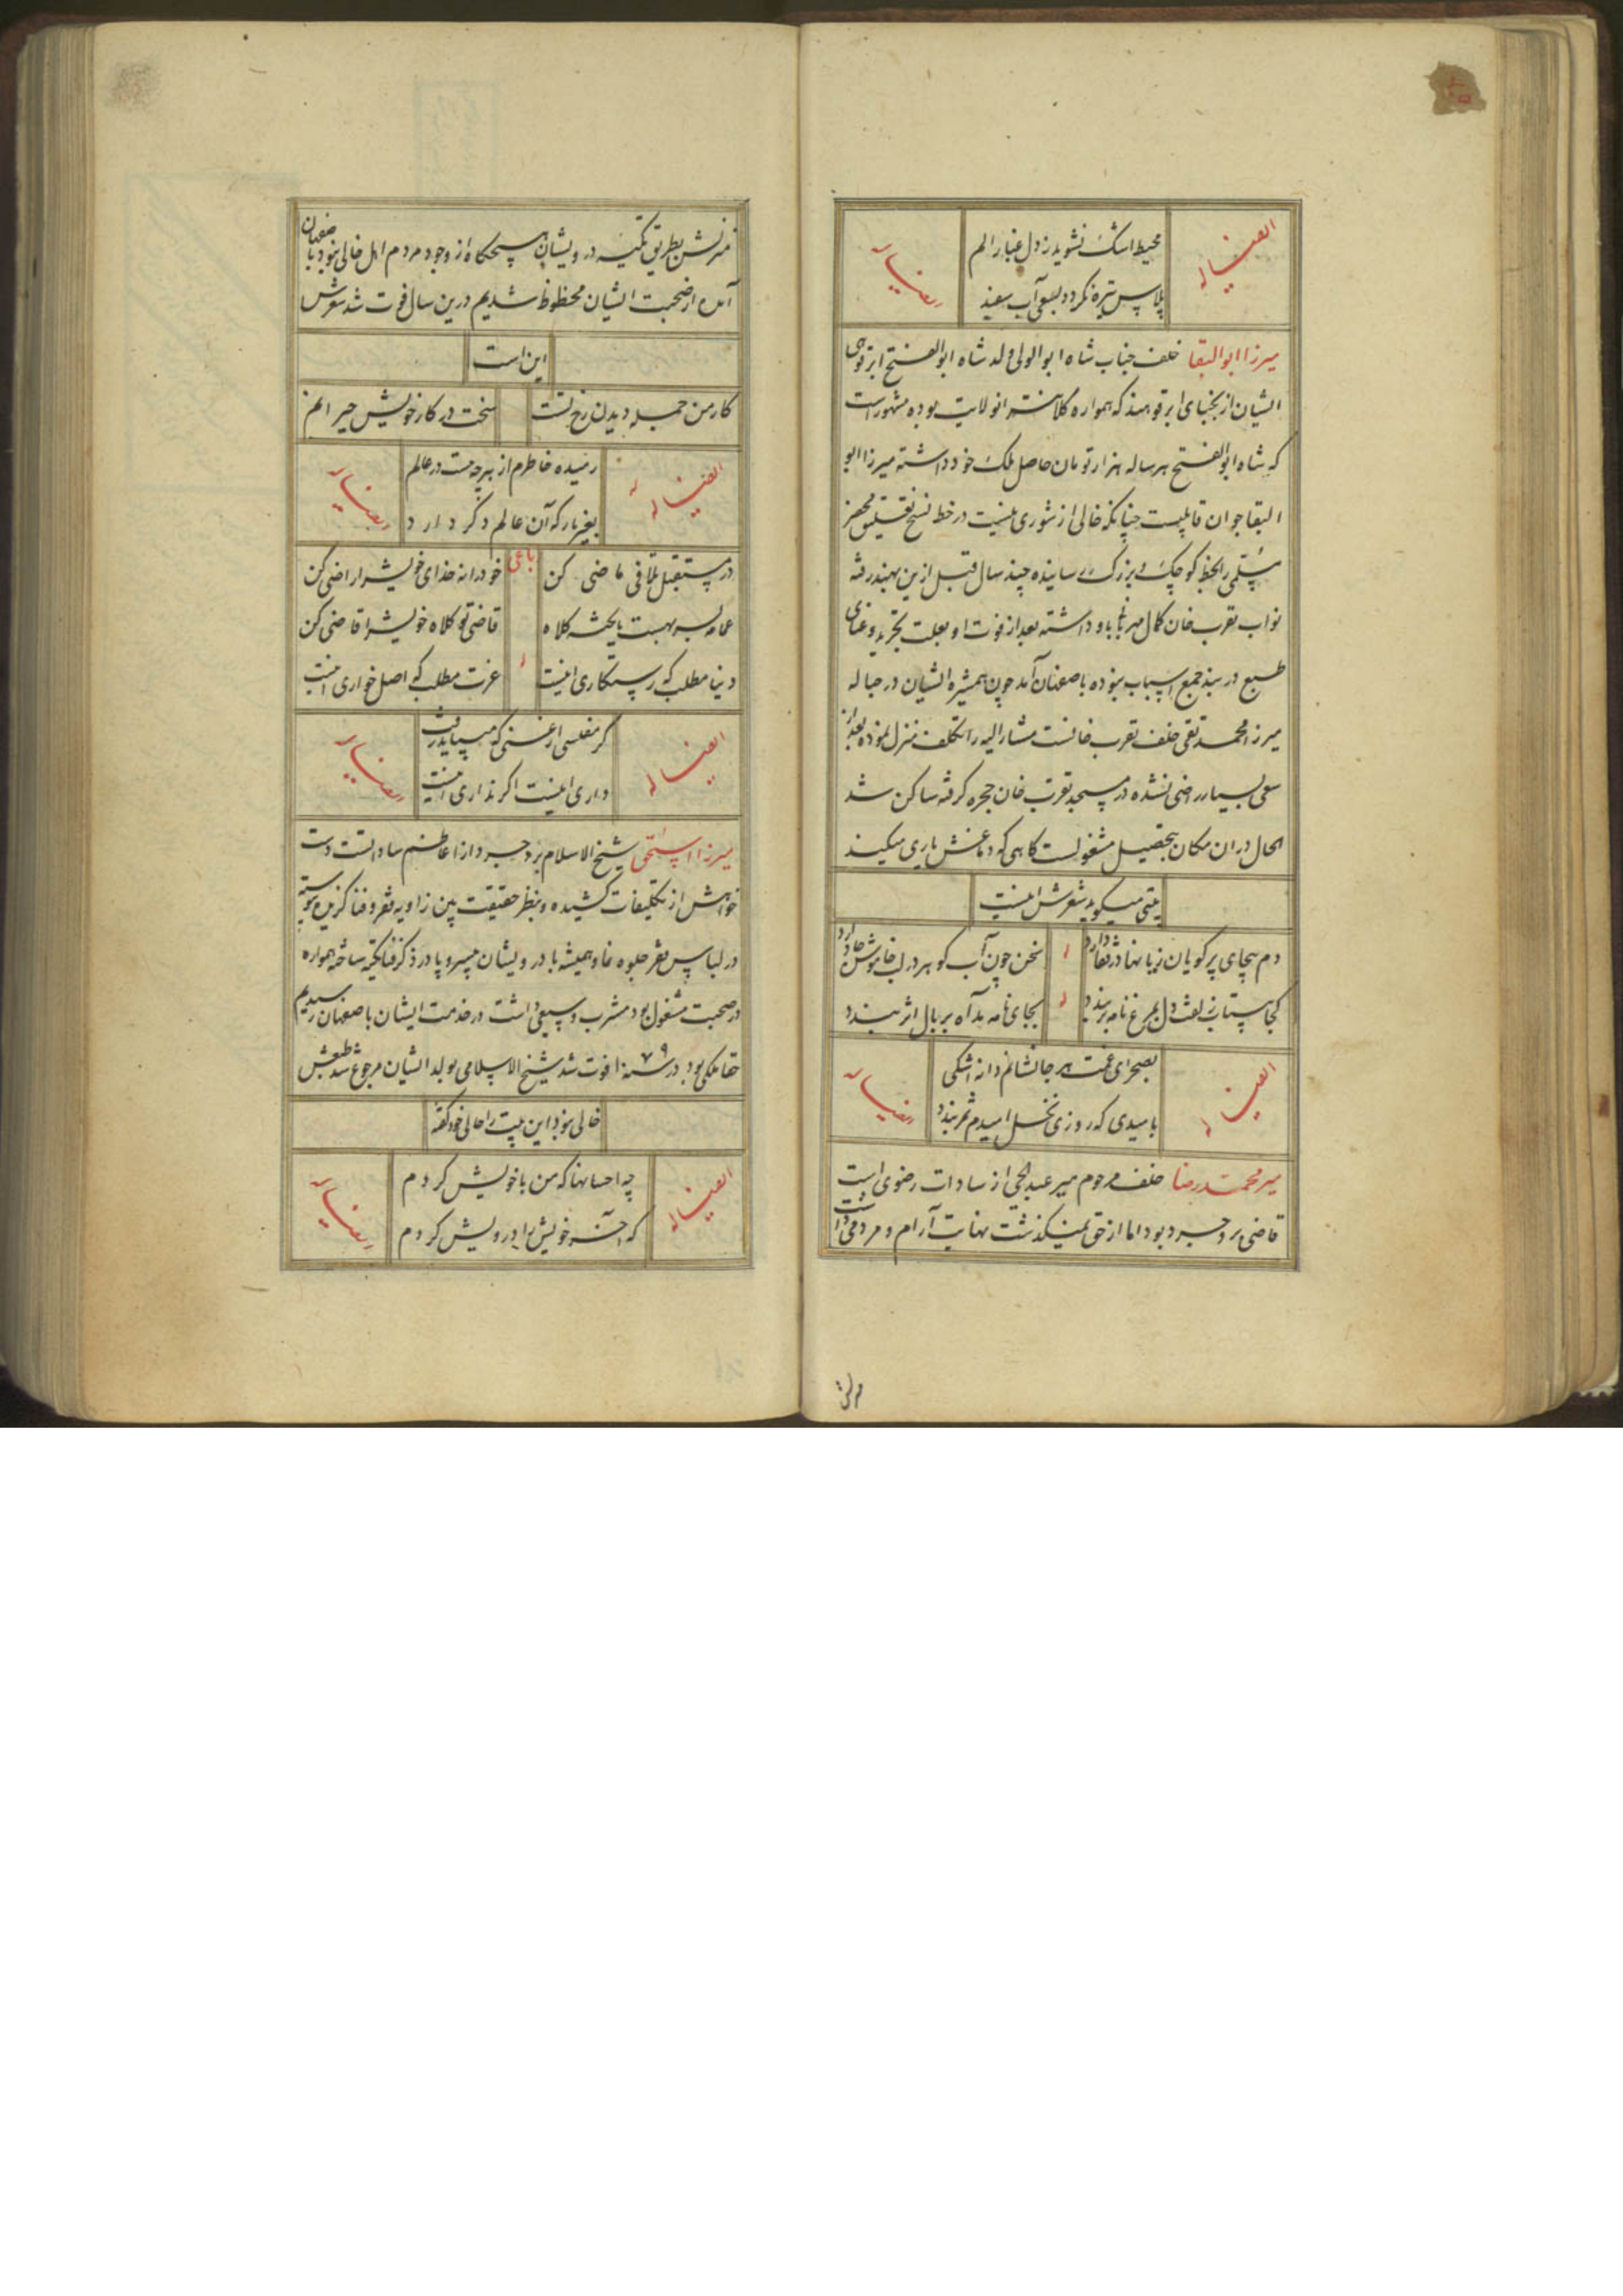 ایضاً له
محیط اشک نشوید ز دل غبار الم
پلاس تیره نکردد بسعی آب سفید
ایضاً له
میرزا ابوالبقا خلف جناب شاه ابوالولی ولد شاه ابوالفتح ابرقوهی
ایشان از نجبای ابرقوهند که همواره کلانتر انولایت بوده مشهور است
که شاه ابوالفتح هر ساله هزار تومان حاصل ملک خود داشته میرزا ابو
البقا جوان قابلیست چنانکه خالی از شوری نیست در خط نسخ تعلیق
را بخط کوچک و بزرک رسانیده چند سال قبل ازین بهند رفته
نواب تقرب خان کمال مهربانی باو داشته بعد از فوت او بعلت تجرید و غنای
طبع در بند جمع اسباب نبوده باصفهان آمد چون همشیره ایشان در حباله
میرزا محمد تقی خلف تقرب خانست مشار الیه را تکلف منزل نموده بعد از
سعی بسیار راضی نشده در مسجد تقرب خان حجره کرفته ساکن شد
الحال در ان مکان بتحصیل مشغولست کاهی که دماغش یاری میکند
بیتی میکوید شعرش اینست
دم بیجای پرکویان زیانها در قفا دارد
سخن چون آب کوهر در لب خاموش جا دارد
له
کجا بستان زلفت دل بمرغ نامه بر بندد
بجای نامه مد آه بر بال اثر بندد
له
ایضاً له
بصحرای غمت هر جا نشانم دانه اشکی
بامیدی که روزی نخل امیدم ثمر بندد
ایضاً له
میر محمد رضا خلف مرحوم میر عبدالحی از سادات رضوی است
قاضی بروجرد بود اما از حق نمیکذشت نهایت آرام و مردمی داشت
منزلش
منزلش بطریق تکیه درویشان هیچکاه از وجود مردم اهل خالی نبود باصفهان
آمده از صحبت ایشان محظوظ شدیم درین سال فوت شد شعرش
این است
کار من جمله دیدن رخ تست
سخت در کار خویش حیرانم
ایضاً له
رمیده خاطرم از هر چه هست در عالم
بغیر یار که آن عالم دکر دارد
ایضاً له
در مستقبل تلافی ماضی کن
رباعی
خود را نه خدای خویش را راضی کن
عمامه بسر بهست یا کلاه
قاضی تو کلاه خویش را قاضی کن
دنیا مطلب که رستکاری اینست
له
عزت مطلب که اصل خواری اینست
ایضاً له
کر مفلسی ار غنی که میباید رفت
داری اینست اکر نداری اینست
ایضاً له
میرزا اسحق شیخ الاسلام بروجرد از اعاظم ساداتست دست
خواهش از تکلیفات کشیده و بنظر حقیقت بین زاویه فقر و فنا کزیده پیوسته
در لباس فقر جلوه نما و همیشه با درویشان بیسروپا در ذکر فنا تکیه ساخته همواره
در صحبت مشغول بود مشرب وسیعی داشت در خدمت ایشان باصفهان رسیدیم
حقا ملکی بود در سنه ۱۰۷۹ فوت شد شیخ الاسلامی بولد ایشان مرجوع شد طبعش
خالی نبود این بیت را حالی خود کفته
ایضاً له
چه احسانها که من با خویش کردم
که آخر خویش را درویش کردم
ایضاً له